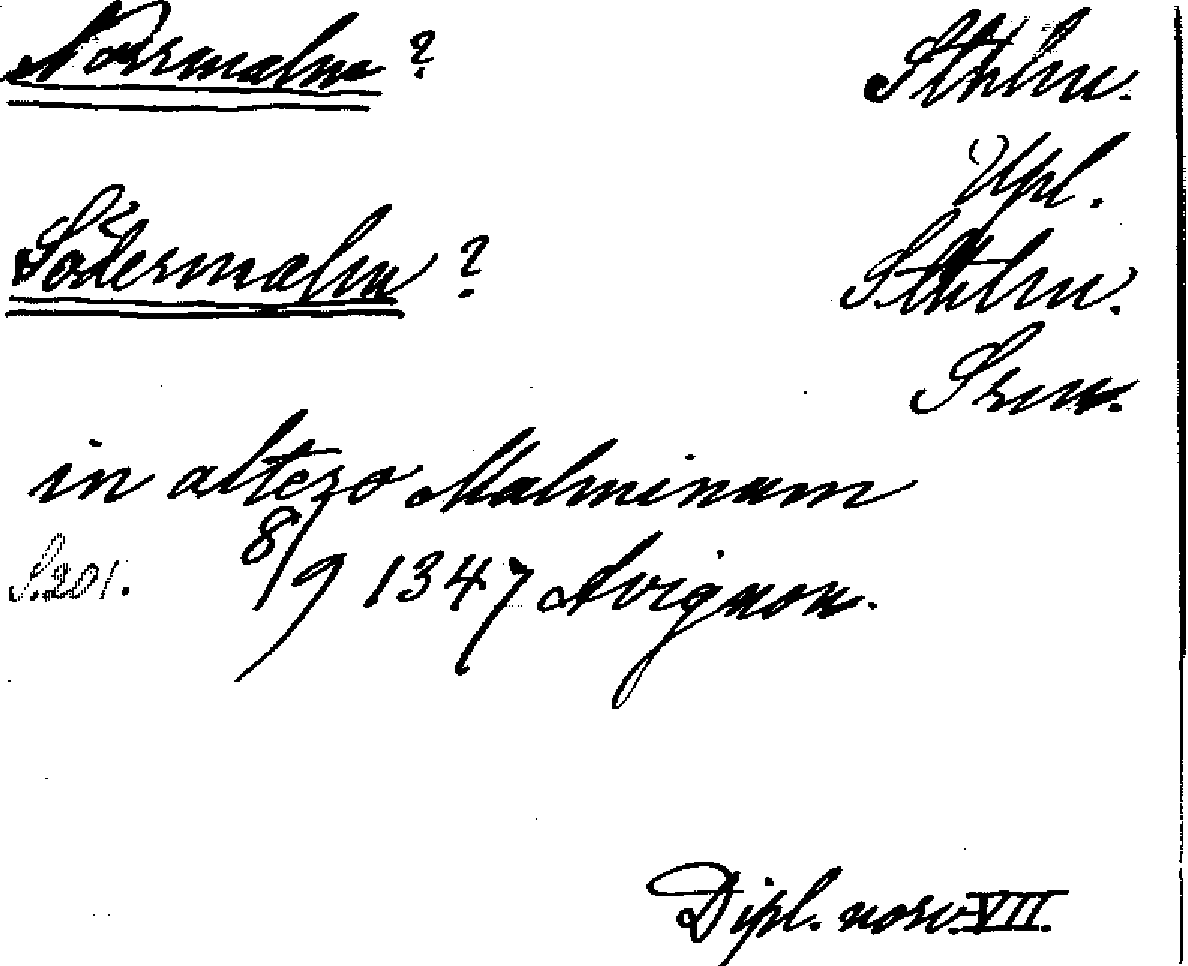 Norrmalm? Sthlm.
Upl.
Södermalm? Sthlm.
Srm.
in altero Malminum
S.201. 8/9 1347 Avignon.
Dipl. norv. VII.